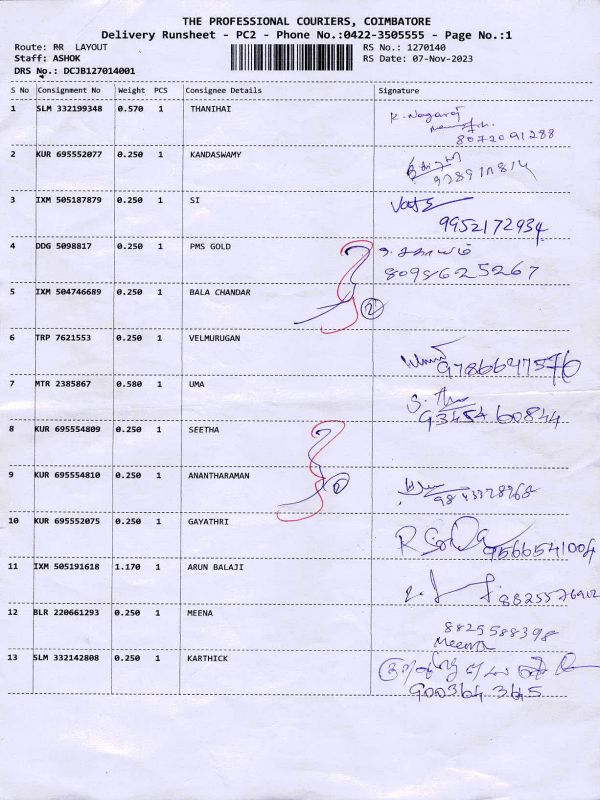 THE PROFESSIONAL COURIERS, COIMBATORE
Delivery Runsheet - PC2 - Phone No.:0422-3505555 - Page No.:1
Route: RR LAYOUT RS No.: 1270140
Staff: ASHOK RS Date: 07-Nov-2023
DRS No.: DCJB127014001
S No Consignment No Weight PCS Consignee Details Signature
1 SLM 332199348 0.570 1 THANIHAI K. Nagaraj
8072091288
2 KUR 695552077 0.250 1 KANDASWAMY
3 IXM 505187879 0.250 1 SI
9952172934
4 DDG 5098817 0.250 1 PMS GOLD
8098625267
5 IXM 504746689 0.250 1 BALA CHANDAR 2
6 TRP 7621553 0.250 1 VELMURUGAN
9786647576
7 MTR 2385867 0.580 1 UMA
9345460844
8 KUR 695554809 0.250 1 SEETHA
9 KUR 695554810 0.250 1 ANANTHARAMAN
10 KUR 695552075 0.250 1 GAYATHRI
9566541004
11 IXM 505191618 1.170 1 ARUN BALAJI
8825576902
12 BLR 220661293 0.250 1 MEENA 8825588398
Meena
13 SLM 332142808 0.250 1 KARTHICK
900364 345